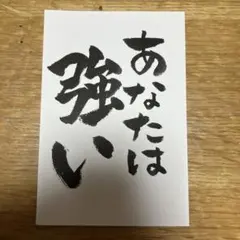 あなたは
強い